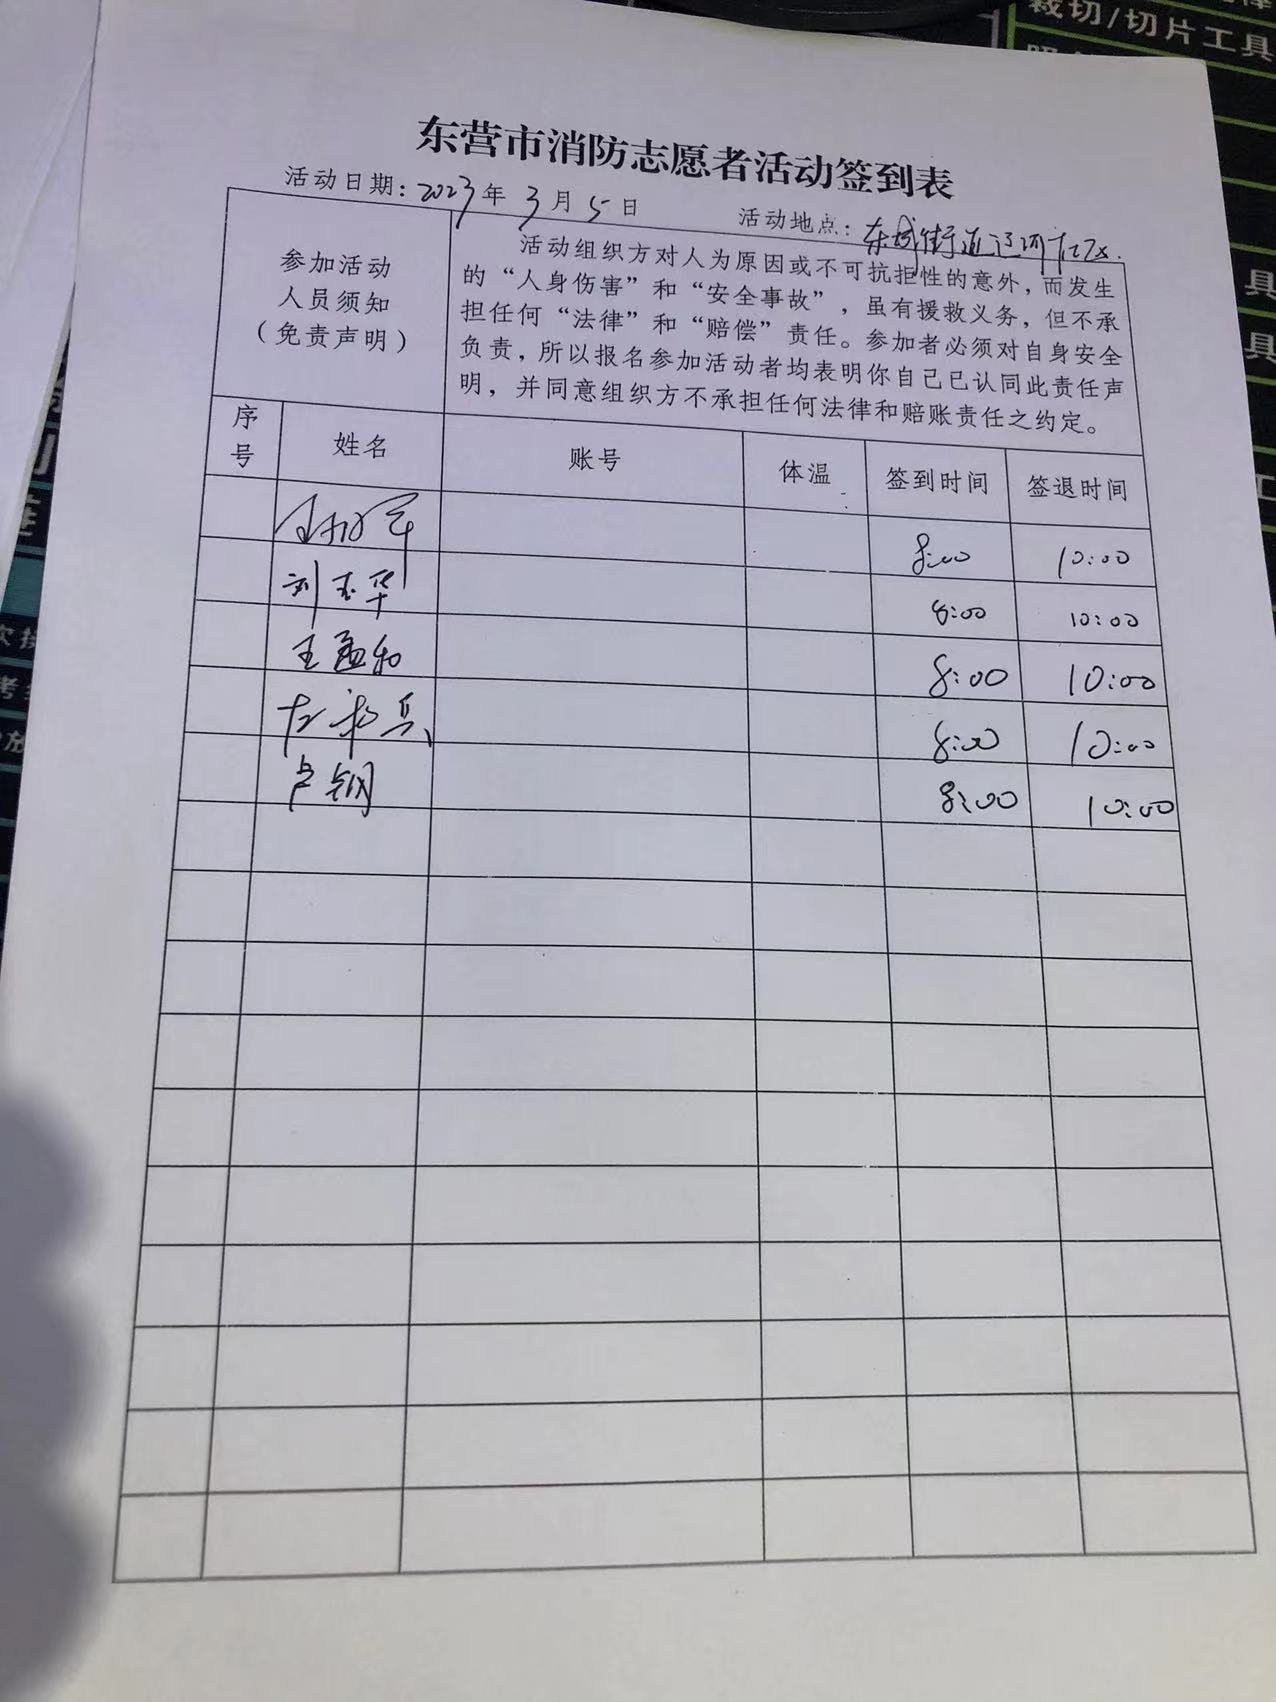 裁切/切片工具
东营市消防志愿者活动签到表
活动日期：2023年3月5日 活动地点：东城街道辽河社区.
参加活动
人员须知
（免责声明）
活动组织方对人为原因或不可抗拒性的意外，而发生
的“人身伤害”和“安全事故”，虽有援救义务，但不承
担任何“法律”和“赔偿”责任。参加者必须对自身安全
负责，所以报名参加活动者均表明你自己已认同此责任声
明，并同意组织方不承担任何法律和赔账责任之约定。
序号 姓名 账号 体温 签到时间 签退时间
8:00 10:00
刘玉华 8:00 10:00
王孟和 8:00 10:00
8:00 10:00
卢钢 8:00 10:00
具
具